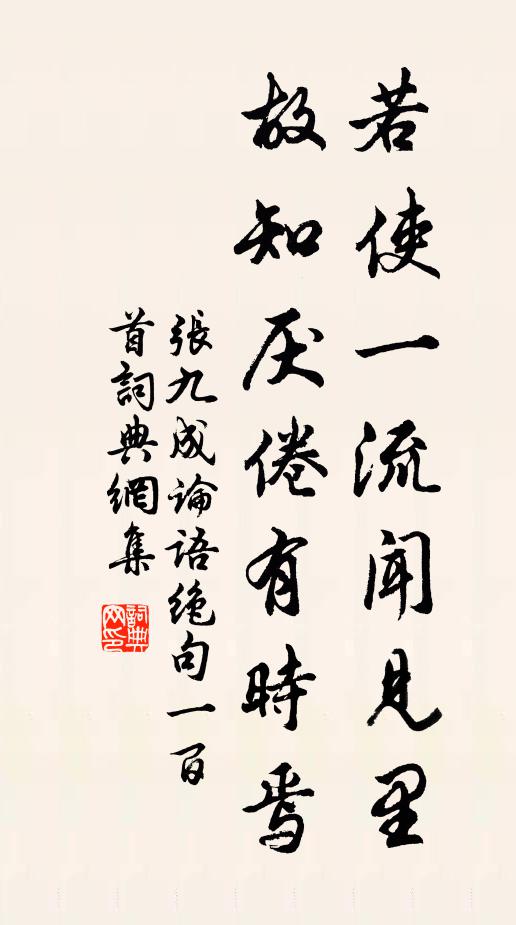 若使一流闻见里
故知厌倦有時焉
張九成論語絶句一百
首詞典網集
詞典网印